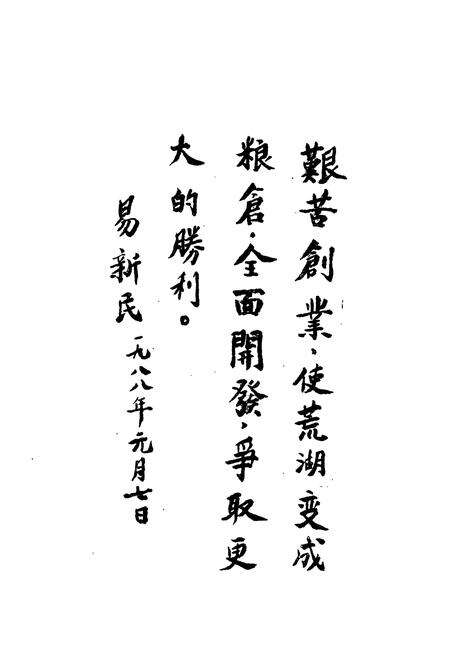 艱苦創業，使荒湖变成
粮倉，全面開發，爭取更
大的勝利。
易新民一九八八年元月七日